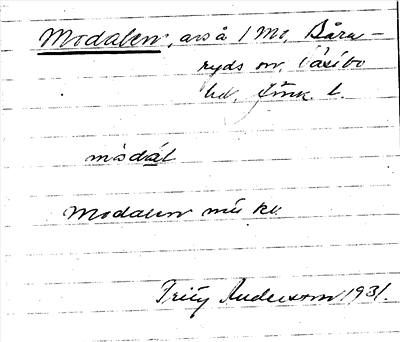 Modalen, avs å 1 Mo, Båra-
ryds sn, Västbo
hd, Jönk. l.
mòdál
Modalen
Fritz Anderson 1931.